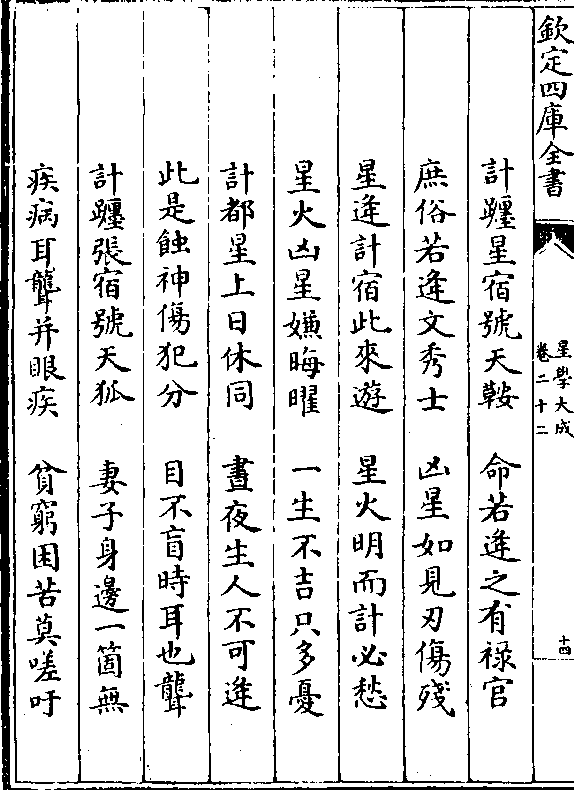 欽定四庫全書
星學大成
卷二十二
十四
計躔星宿號天鞍　命若逢之有祿官
庶俗若逢文秀士　凶星如見刃傷殘
星逢計宿此來遊　星火明而計必愁
星火凶星嫌晦曜　一生不吉只多憂
計都星上日休同　晝夜生人不可逢
此是蝕神傷犯分　目不盲時耳也聾
計躔張宿號天狐　妻子身邊一箇無
疾病耳聾并眼疾　貧窮困苦莫嗟吁